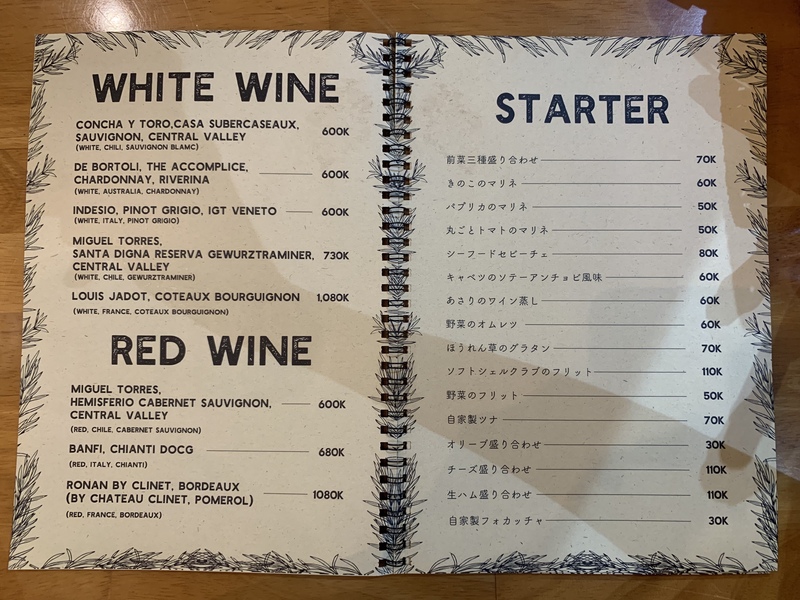 WHITE WINE
CONCHA Y TORO,CASA SUBERCASEAUX,
SAUVIGNON, CENTRAL VALLEY 600K
(WHITE, CHILI, SAUVIGNON BLAMC)
DE BORTOLI, THE ACCOMPLICE,
CHARDONNAY, RIVERINA 600K
(WHITE, AUSTRALIA, CHARDONNAY)
INDESIO, PINOT GRIGIO, IGT VENETO 600K
(WHITE, ITALY, PINOT GRIGIO)
MIGUEL TORRES,
SANTA DIGNA RESERVA GEWURZTRAMINER, 730K
CENTRAL VALLEY
(WHITE, CHILE, GEWURZTRAMINER)
LOUIS JADOT, COTEAUX BOURGUIGNON 1,080K
(WHITE, FRANCE, COTEAUX BOURGUIGNON)
RED WINE
MIGUEL TORRES,
HEMISFERIO CABERNET SAUVIGNON, 600K
CENTRAL VALLEY
(RED, CHILE, CABERNET SAUVIGNON)
BANFI, CHIANTI DOCG 680K
(RED, ITALY, CHIANTI)
RONAN BY CLINET, BORDEAUX
(BY CHATEAU CLINET, POMEROL) 1080K
(RED, FRANCE, BORDEAUX)
STARTER
前菜三種盛り合わせ 70K
きのこのマリネ 60K
パプリカのマリネ 50K
丸ごとトマトのマリネ 50K
シーフードセビーチェ 80K
キャベツのソテーアンチョビ風味 60K
あさりのワイン蒸し 60K
野菜のオムレツ 60K
ほうれん草のグラタン 70K
ソフトシェルクラブのフリット 110K
野菜のフリット 50K
自家製ツナ 70K
オリーブ盛り合わせ 30K
チーズ盛り合わせ 110K
生ハム盛り合わせ 110K
自家製フォカッチャ 30K